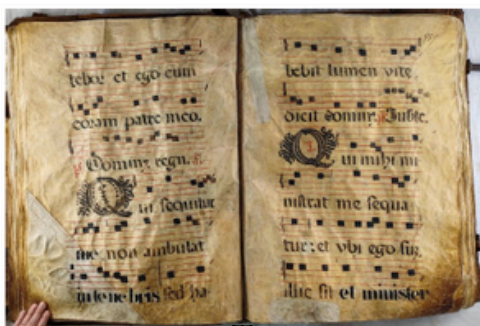 tebor et ego cum
coram patre meo.
Dominꝰ regn. s.
Qui sequitur
me non ambulat
in tenebris sed ha
bebit lumen vite,
dicit dominꝰ. Iuste.
Qui mihi mi
nistrat me sequa
tur: et vbi ego suꝫ,
illic sit et minister